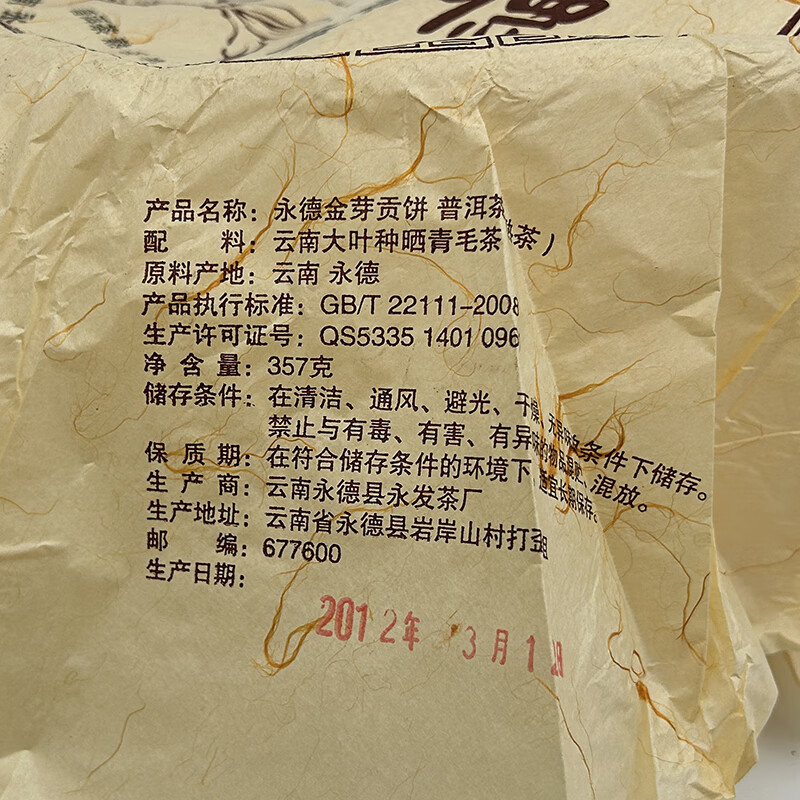 产品名称：永德金芽贡饼 普洱茶（熟茶）
配 料：云南大叶种晒青毛茶
原料产地：云南 永德
产品执行标准：GB/T 22111-2008
生产许可证号：QS5335 1401 096
净 含 量：357克
储存条件：在清洁、通风、避光、干燥、无异味条件下储存。
禁止与有毒、有害、有异味的物质混贮、混放。
保 质 期：在符合储存条件的环境下，适宜长期保存。
生 产 商：云南永德县永发茶厂
生产地址：云南省永德县岩岸山村打
邮 编：677600
生产日期：
2012年 3月1